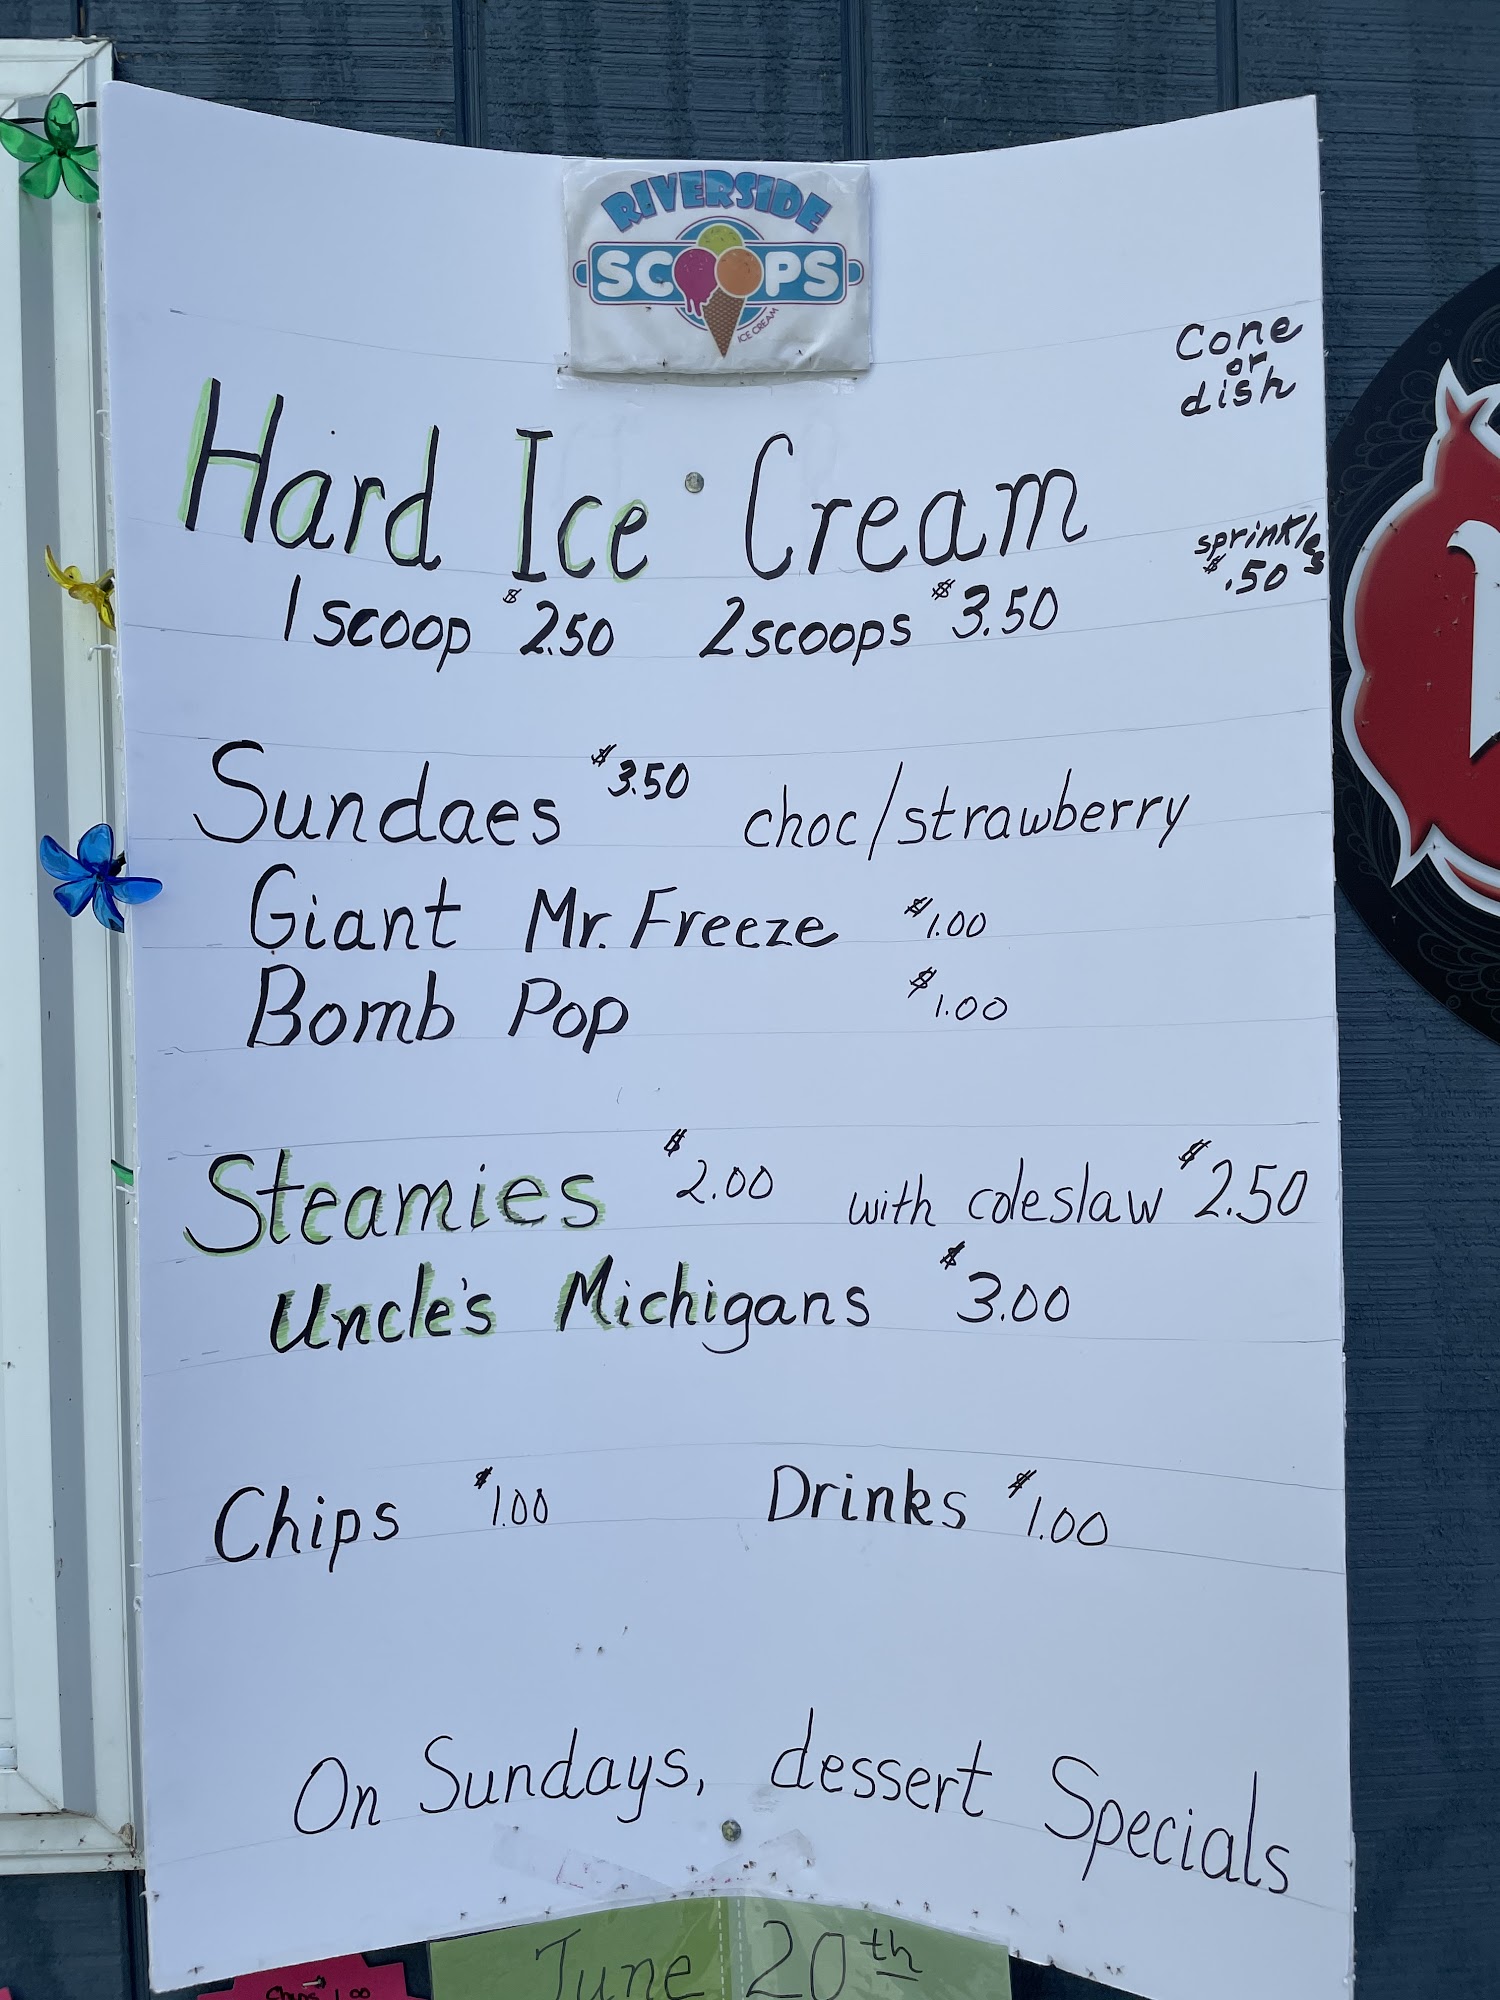 RIVERSIDE
SCOOPS
ICE CREAM
Cone
or
dish
Hard Ice Cream
sprinkles
$.50
1 scoop $2.50 2 scoops $3.50
Sundaes $3.50 choc/strawberry
Giant Mr. Freeze $1.00
Bomb Pop $1.00
Steamies $2.00 with coleslaw $2.50
Uncle's Michigans $3.00
Chips $1.00 Drinks $1.00
On Sundays, dessert Specials
June 20th